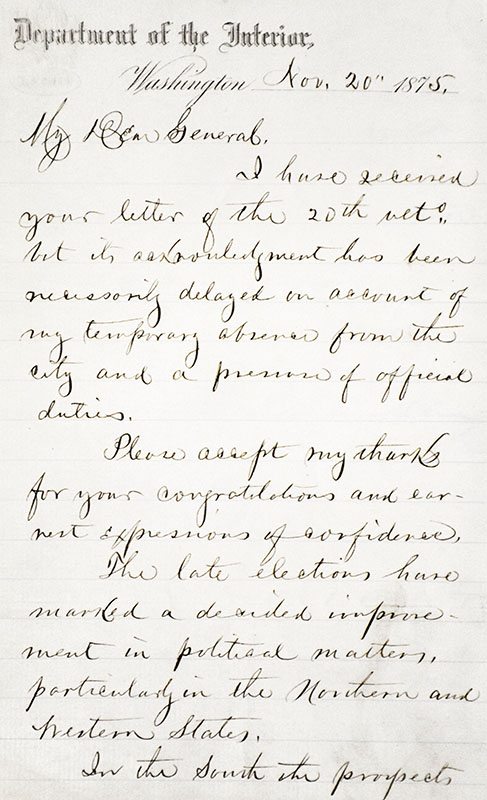 Department of the Interior,
Washington Nov. 20" 1875.
My Dear General.
I have received
your letter of the 20th ulto.,
but its acknowledgment has been
necessarily delayed on account of
my temporary absence from the
city and a pressure of official
duties.
Please accept my thanks
for your congratulations and ear-
nest expressions of confidence.
The late elections have
marked a decided improve-
ment in political matters,
particularly in the Northern and
Western States.
In the South the prospects